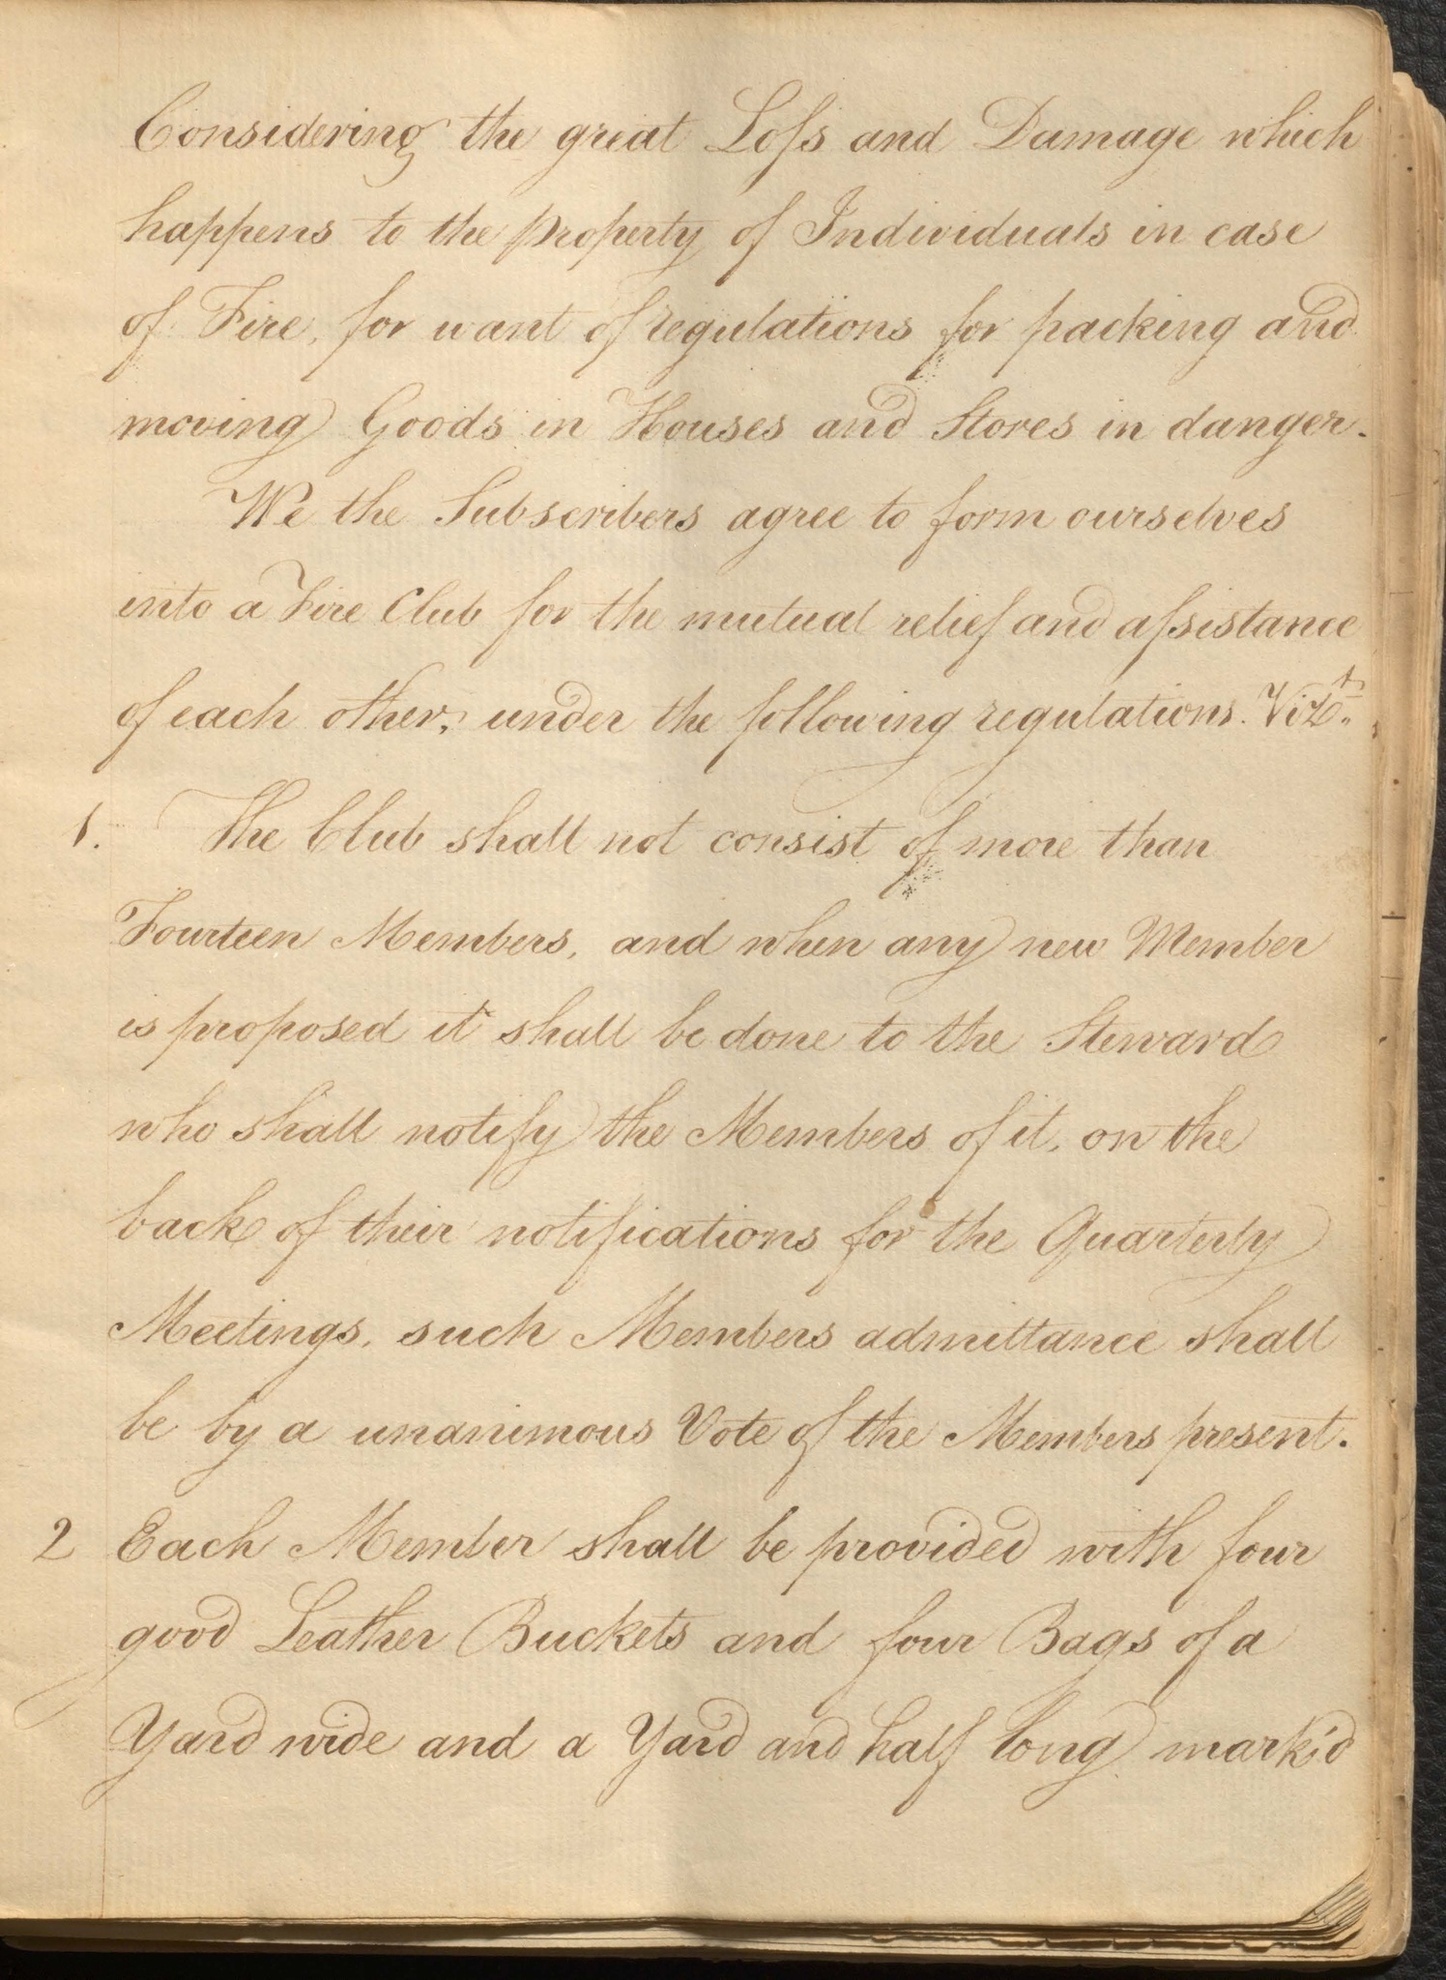 Considering the great Loſs and Damage which
happens to the property of Individuals in case
of Fire, for want of regulations for packing and
moving Goods in Houses and Stores in danger.
We the Subscribers agree to form ourselves
into a Fire Club for the mutual relief and aſsistance
of each other, under the following regulations. Vizt.
1. The Club shall not consist of more than
Fourteen Members, and when any new Member
is proposed it shall be done to the Steward
who shall notify the Members of it, on the
back of their notifications for the Quarterly
Meetings, such Members admittance shall
be by a unanimous Vote of the Members present.
2 Each Member shall be provided with four
good Leather Buckets and four Bags of a
Yard wide and a Yard and half long mark'd